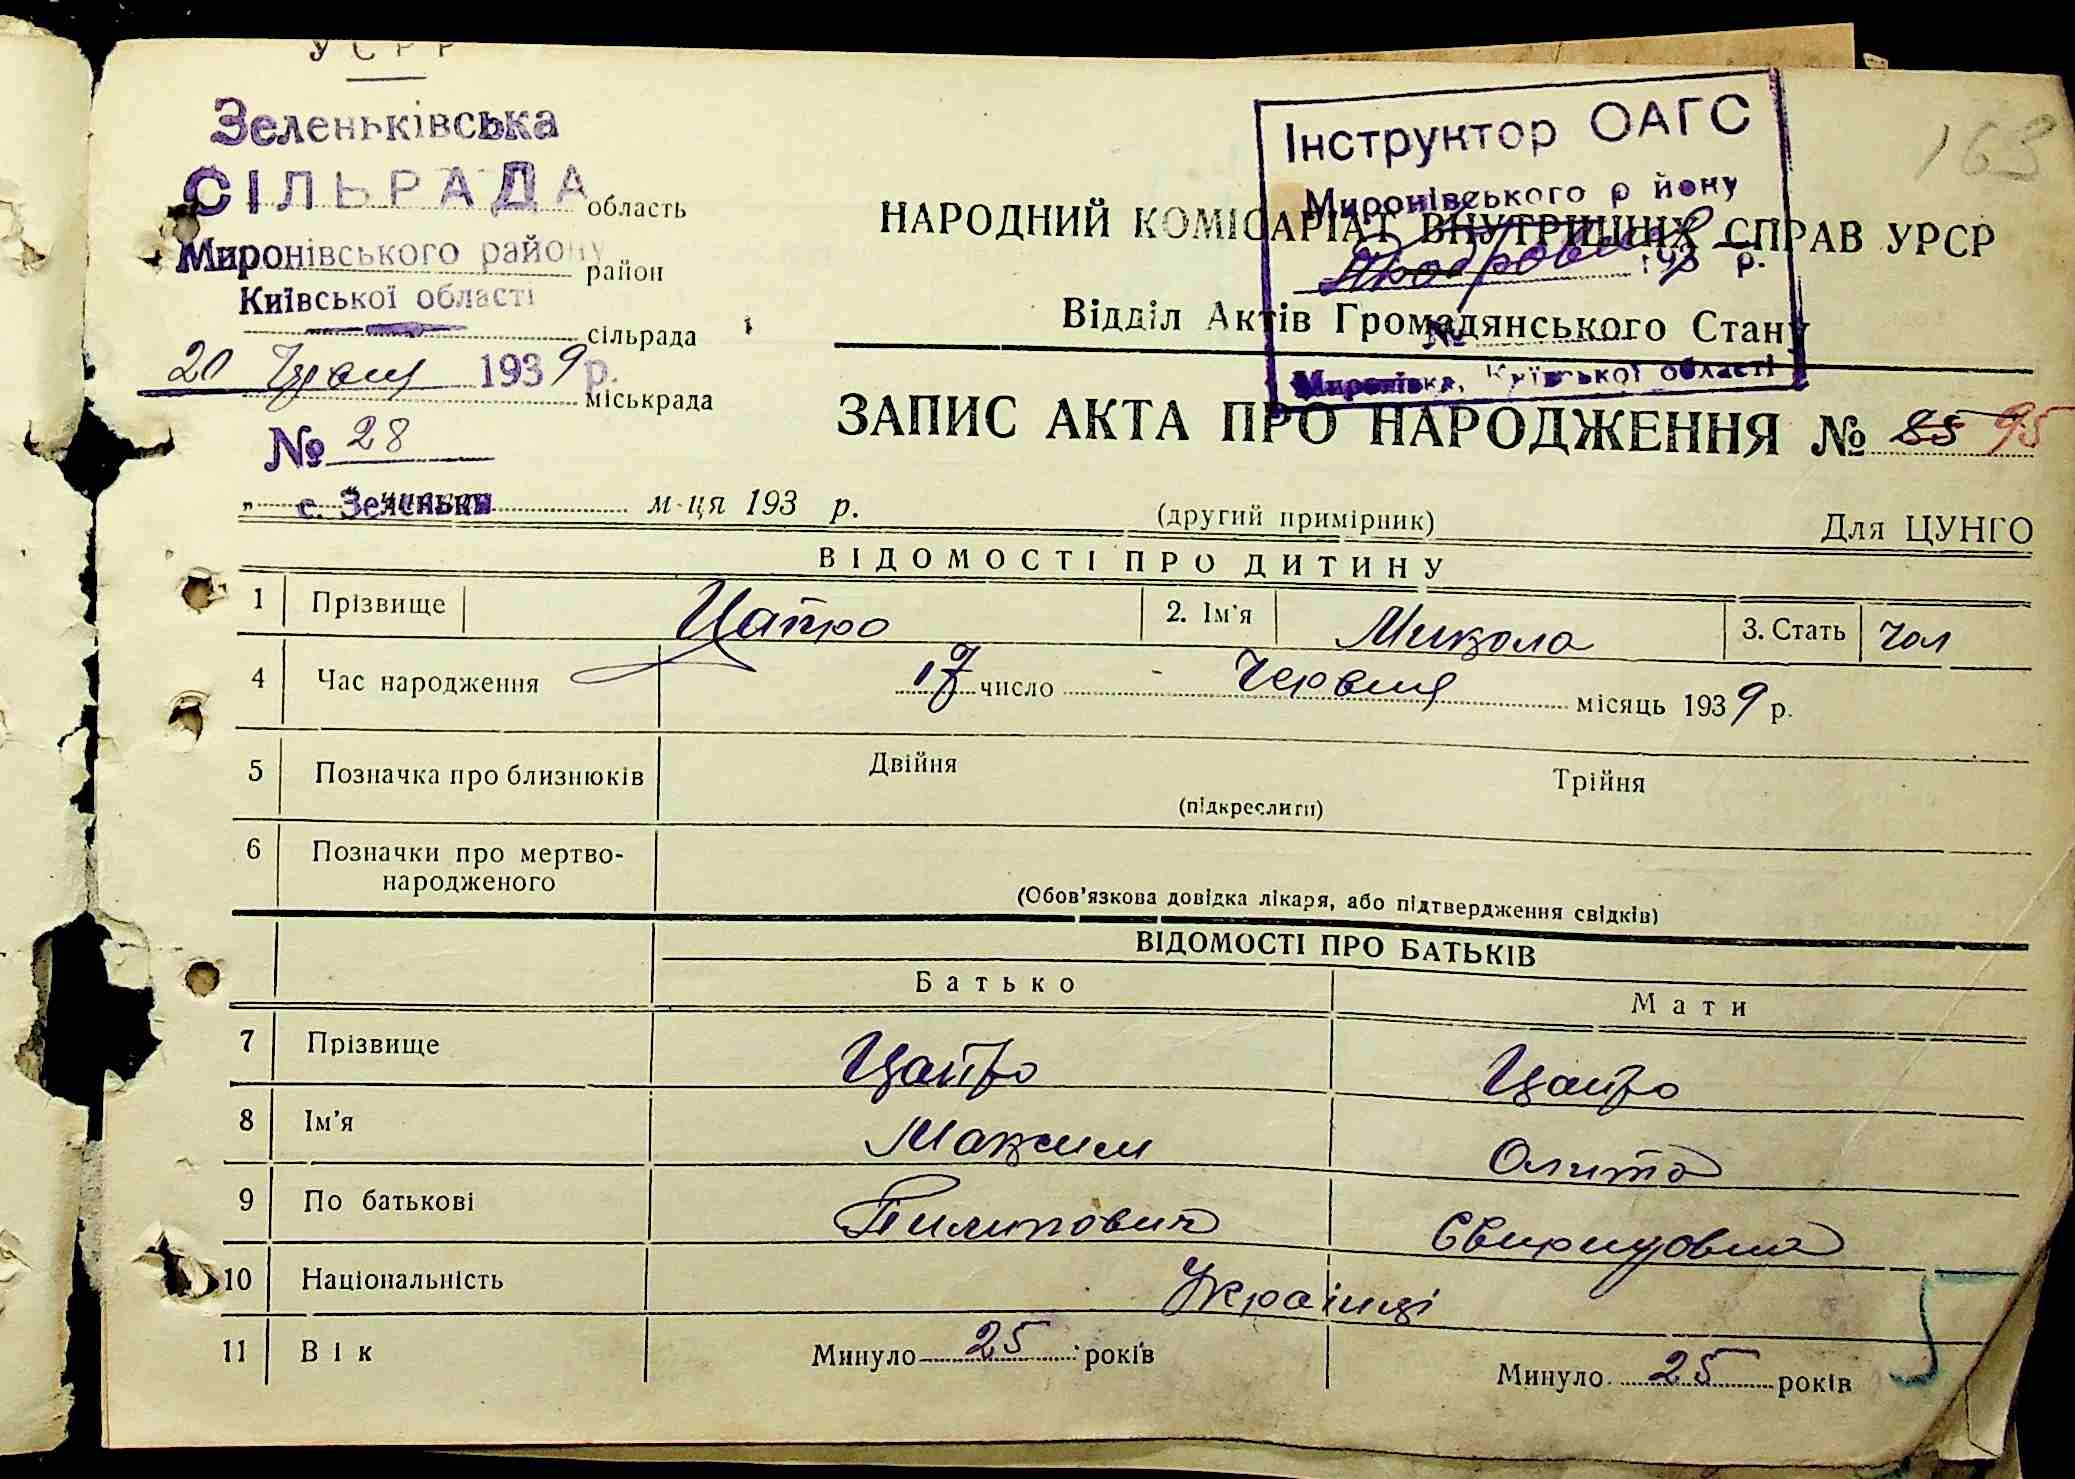 УСРР
Зеленьківська
СІЛЬРАДА область
Миронівського району район
Київської області
сільрада
20 Червня 1939 р.
міськрада
№ 28
" с. Зеленьки м-ця 193 р.
Інструктор ОАГС
Миронівського р йону
193 р.
№
Миронівка, Київської області
163
НАРОДНИЙ КОМІСАРІАТ ВНУТРІШНІХ СПРАВ УРСР
Відділ Актів Громадянського Стану
ЗАПИС АКТА ПРО НАРОДЖЕННЯ № 85 95
(другий примірник) Для ЦУНГО
ВІДОМОСТІ ПРО ДИТИНУ
1 Прізвище Цапро 2. Ім'я Микола 3. Стать чол
4 Час народження 17 число Червня місяць 1939 р.
5 Позначка про близнюків Двійня Трійня
(підкреслити)
6 Позначки про мертво-
народженого
(Обов'язкова довідка лікаря, або підтвердження свідків)
ВІДОМОСТІ ПРО БАТЬКІВ
Батько Мати
7 Прізвище Цапро Цапро
8 Ім'я Максим
9 По батькові Пилипович Свиридовна
10 Національність Українці
11 Вік Минуло 25 років Минуло 25 років